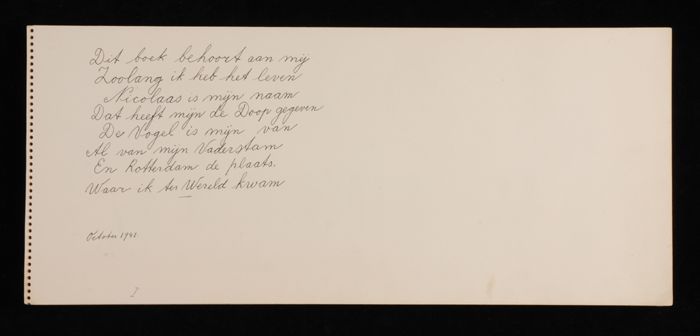 Dit boek behoort aan mij
Zoolang ik heb het leven
Nicolaas is mijn naam
Dat heeft mijn de Doop gegeven
De Vogel is mijn van
Al van mijn Vaderstam
En Rotterdam de plaats.
Waar ik ter Wereld kwam
October 1941
I